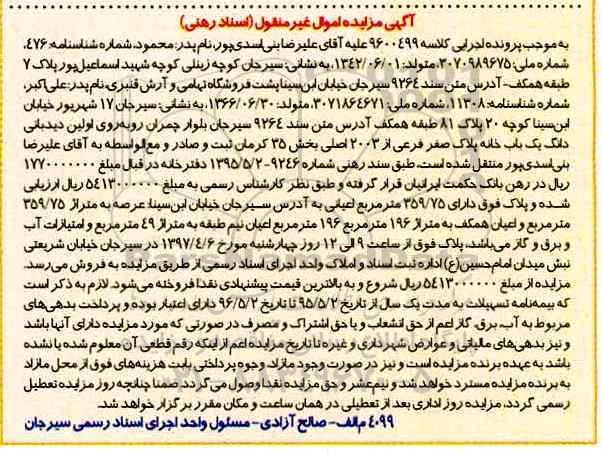 آگهی مزایده اموال غیر منقول (اسناد رهنی)
به موجب پرونده اجرایی کلاسه ۹۶۰۰۴۹۹ علیه آقای علیرضا بنی‌اسدی‌پور، نام پدر: محمود، شماره شناسنامه: ۴۷۶،
شماره ملی: ۳۰۷۰۹۸۹۶۷۵، متولد: ۱۳۴۲/۰۶/۰۱، به نشانی: سیرجان کوچه زینلی کوچه شهید اسماعیل‌پور پلاک ۷
طبقه همکف- آدرس متن سند ۹۲۶۴ سیرجان خیابان ابن‌سینا پشت فروشگاه تهامی و آرش قنبری، نام پدر: علی‌اکبر،
شماره شناسنامه: ۱۱۳۰۸، شماره ملی: ۳۰۷۱۸۶۴۶۷۱، متولد: ۱۳۶۶/۰۶/۳۰، به نشانی: سیرجان ۱۷ شهریور خیابان
ابن‌سینا کوچه ۲۰ پلاک ۸۱ طبقه همکف آدرس متن سند ۹۲۶۴ سیرجان بلوار چمران روبه‌روی اولین دیدبانی
دانگ یک باب خانه پلاک صفر فرعی از ۲۰۰۳ اصلی بخش ۳۵ کرمان ثبت و صادر و مع‌الواسطه به آقای علیرضا
بنی‌اسدی‌پور منتقل شده است، طبق سند رهنی شماره ۹۲۴۶-۱۳۹۵/۵/۲ دفترخانه در قبال مبلغ ۱۷۷۰۰۰۰۰۰۰
ریال در رهن بانک حکمت ایرانیان قرار گرفته و طبق نظر کارشناس رسمی به مبلغ ۵۴۱۳۰۰۰۰۰۰ ریال ارزیابی
شده و پلاک فوق دارای ۳۵۹/۷۵ مترمربع اعیانی به آدرس سیرجان خیابان ابن‌سینا: عرصه به متراژ ۳۵۹/۷۵
مترمربع و اعیان همکف به متراژ ۱۹۶ مترمربع ۱۹۶ مترمربع اعیان نیم طبقه به متراژ ۴۹ مترمربع و امتیازات آب
و برق و گاز می‌باشد، پلاک فوق از ساعت ۹ الی ۱۲ روز چهارشنبه مورخ ۱۳۹۷/۴/۶ در سیرجان خیابان شریعتی
نبش میدان امام‌حسین(ع) اداره ثبت اسناد و املاک واحد اجرای اسناد رسمی از طریق مزایده به فروش می‌رسد.
مزایده از مبلغ ۵۴۱۳۰۰۰۰۰۰ ریال شروع و به بالاترین قیمت پیشنهادی نقداً فروخته می‌شود. لازم به ذکر است
که بیمه‌نامه تسهیلات به مدت یک سال از تاریخ ۹۵/۵/۲ تا تاریخ ۹۶/۵/۲ دارای اعتبار بوده و پرداخت بدهی‌های
مربوط به آب، برق، گاز اعم از حق انشعاب و یا حق اشتراک و مصرف در صورتی که مورد مزایده دارای آنها باشد
و نیز بدهی‌های مالیاتی و عوارض شهرداری و غیره تا تاریخ مزایده اعم از اینکه رقم قطعی آن معلوم شده یا نشده
باشد به عهده برنده مزایده است و نیز در صورت وجود مازاد وجوه پرداختی بابت هزینه‌های فوق از محل مازاد
به برنده مزایده مسترد خواهد شد و نیم‌عشر و حق مزایده نقداً وصول می‌گردد. ضمناً چنانچه روز مزایده تعطیل
رسمی گردد، مزایده روز اداری بعد از تعطیلی در همان ساعت و مکان مقرر برگزار خواهد شد.
۴۰۹۹ م‌الف- صالح آزادی- مسئول واحد اجرای اسناد رسمی سیرجان